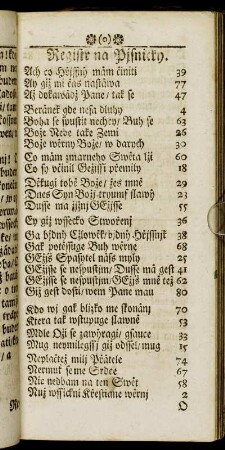 (o)
Registr na Pjsničky.
Ach co Hřjssný mám činiti 39
Ay giž mi čas nastáwá 77
Až dokawádž Pane/ tak se 47
Beránek gde nesa dluhy 4
Boha se spustit nechcy/ Buh se 63
Bože Nebe také Zemi 26
Bože wěrný Bože/ w darých 30
Co mám zmarného Swěta lži 60
Co so včinil Gežjssi přemilý 18
Děkugi tobě Bože/ žes mně 29
Dnes Syn Boží tryumf slawj 23
Dusse má žjznj GEžjsse 57
Ey giž wssecko Stwořenj 36
Ga bjdný Čłowěk/ bjdný Hřjssnjk 38
Gak potěssuge Buh wěrné 68
GEžjš Spasytel náš milý 25
GEžjsse se nespustjm/ Dusse má gest 41
GEžjsse se nespustjm/ GEžjš mně též 62
Giž gest dosti/ wem Pane mau 80
Kdo wj gak bljzko me skonánj 70
Ktera tak wstupuge slawně 53
Mdlé Oči se zawjragj/ gsauce 33
Mug neymilegssj/ giž odssel/ mug 15
Neplačtež milj Přátelé 74
Nermut seme Srdce 67
Nic nedbam na ten Swět 58
Nuž wssickni Křestiané wěrnj 2
O